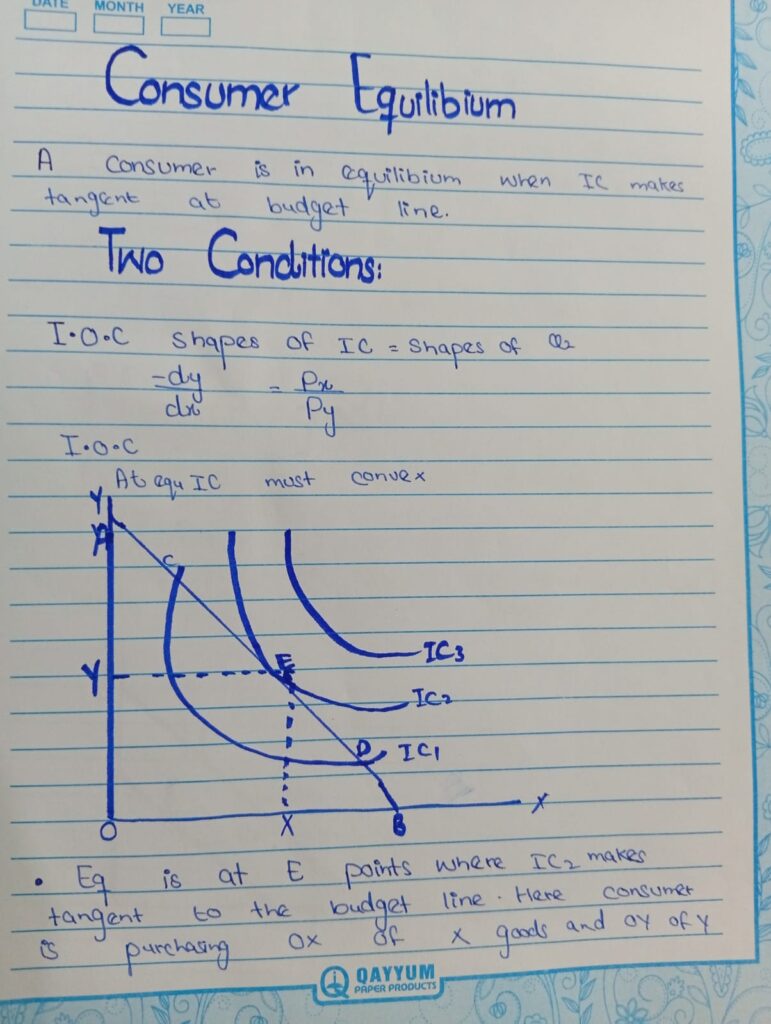 DATE MONTH YEAR
Consumer Equilibium
A consumer is in equilibium when IC makes
tangent at budget line.
Two Conditions:
I.O.C Shapes of IC = Shapes of
-dy/dx = Px/Py
I.O.C
At equ IC must convex
Y
A
C
E
IC3
Y
IC2
D
IC1
X
O
X
B
• Eq is at E points where IC2 makes
tangent to the budget line. Here consumer
is purchasing OX of X goods and OY of Y
QAYYUM
PAPER PRODUCTS